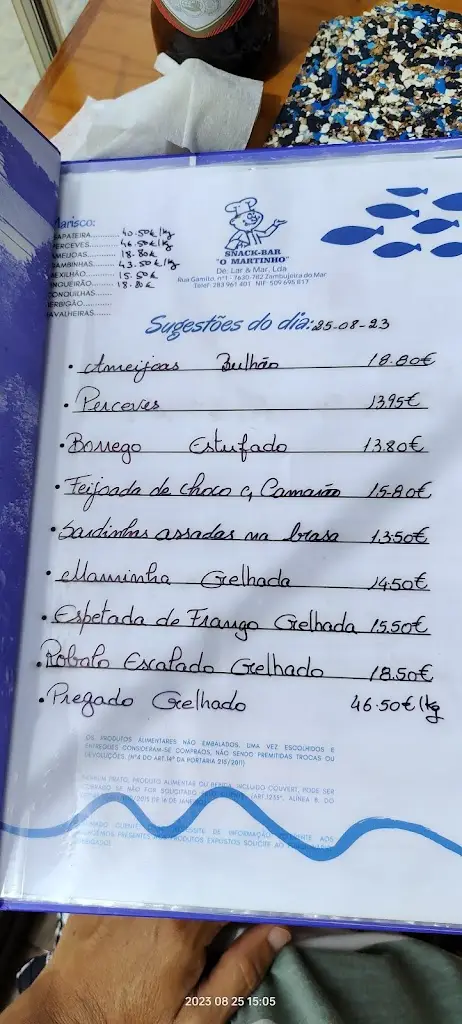 Marisco:
SAPATEIRA......... 40.50€/kg
PERCEVES......... 46.50€/kg
AMEIJOAS......... 18.80€
CAMBINHAS......... 43.50€/kg
MEXILHÃO......... 15.50€
LINGUEIRÃO......... 18.80€
CONQUILHAS.........
BERBIGÃO.........
NAVALHEIRAS.........
SNACK-BAR
"O MARTINHO"
De: Lar & Mar, Lda
Rua Gamito, nº1 - 7630-782 Zambujeira do Mar
Telef: 283 961 401 NIF: 509 698 817
Sugestões do dia: 25-08-23
• Ameijoas Bulhão 18.80€
• Perceves 13.95€
• Borrego Estufado 13.80€
• Feijoada de choco c/ Camarão 15.80€
• Sardinhas assadas na brasa 13.50€
• Maminha Grelhada 14.50€
• Espetada de Frango Grelhada 15.50€
• Robalo Escalado Grelhado 18.50€
• Pregado Grelhado 46.50€/kg
OS PRODUTOS ALIMENTARES NÃO EMBALADOS, UMA VEZ ESCOLHIDOS E
ENTREGUES CONSIDERAM-SE COMPRADOS, NÃO SENDO PERMITIDAS TROCAS OU
DEVOLUÇÕES. (Nº4 DO ART.14º DA PORTARIA 215/2011)
NENHUM PRATO, PRODUTO ALIMENTAR OU BEBIDA, INCLUIDO COUVERT, PODE SER
COBRADO SE NÃO FOR SOLICITADO PELO CLIENTE (ART.135º, ALÍNEA 3, DO
10/2015 DE 16 DE JANEIRO)
2023 08 25 15:05